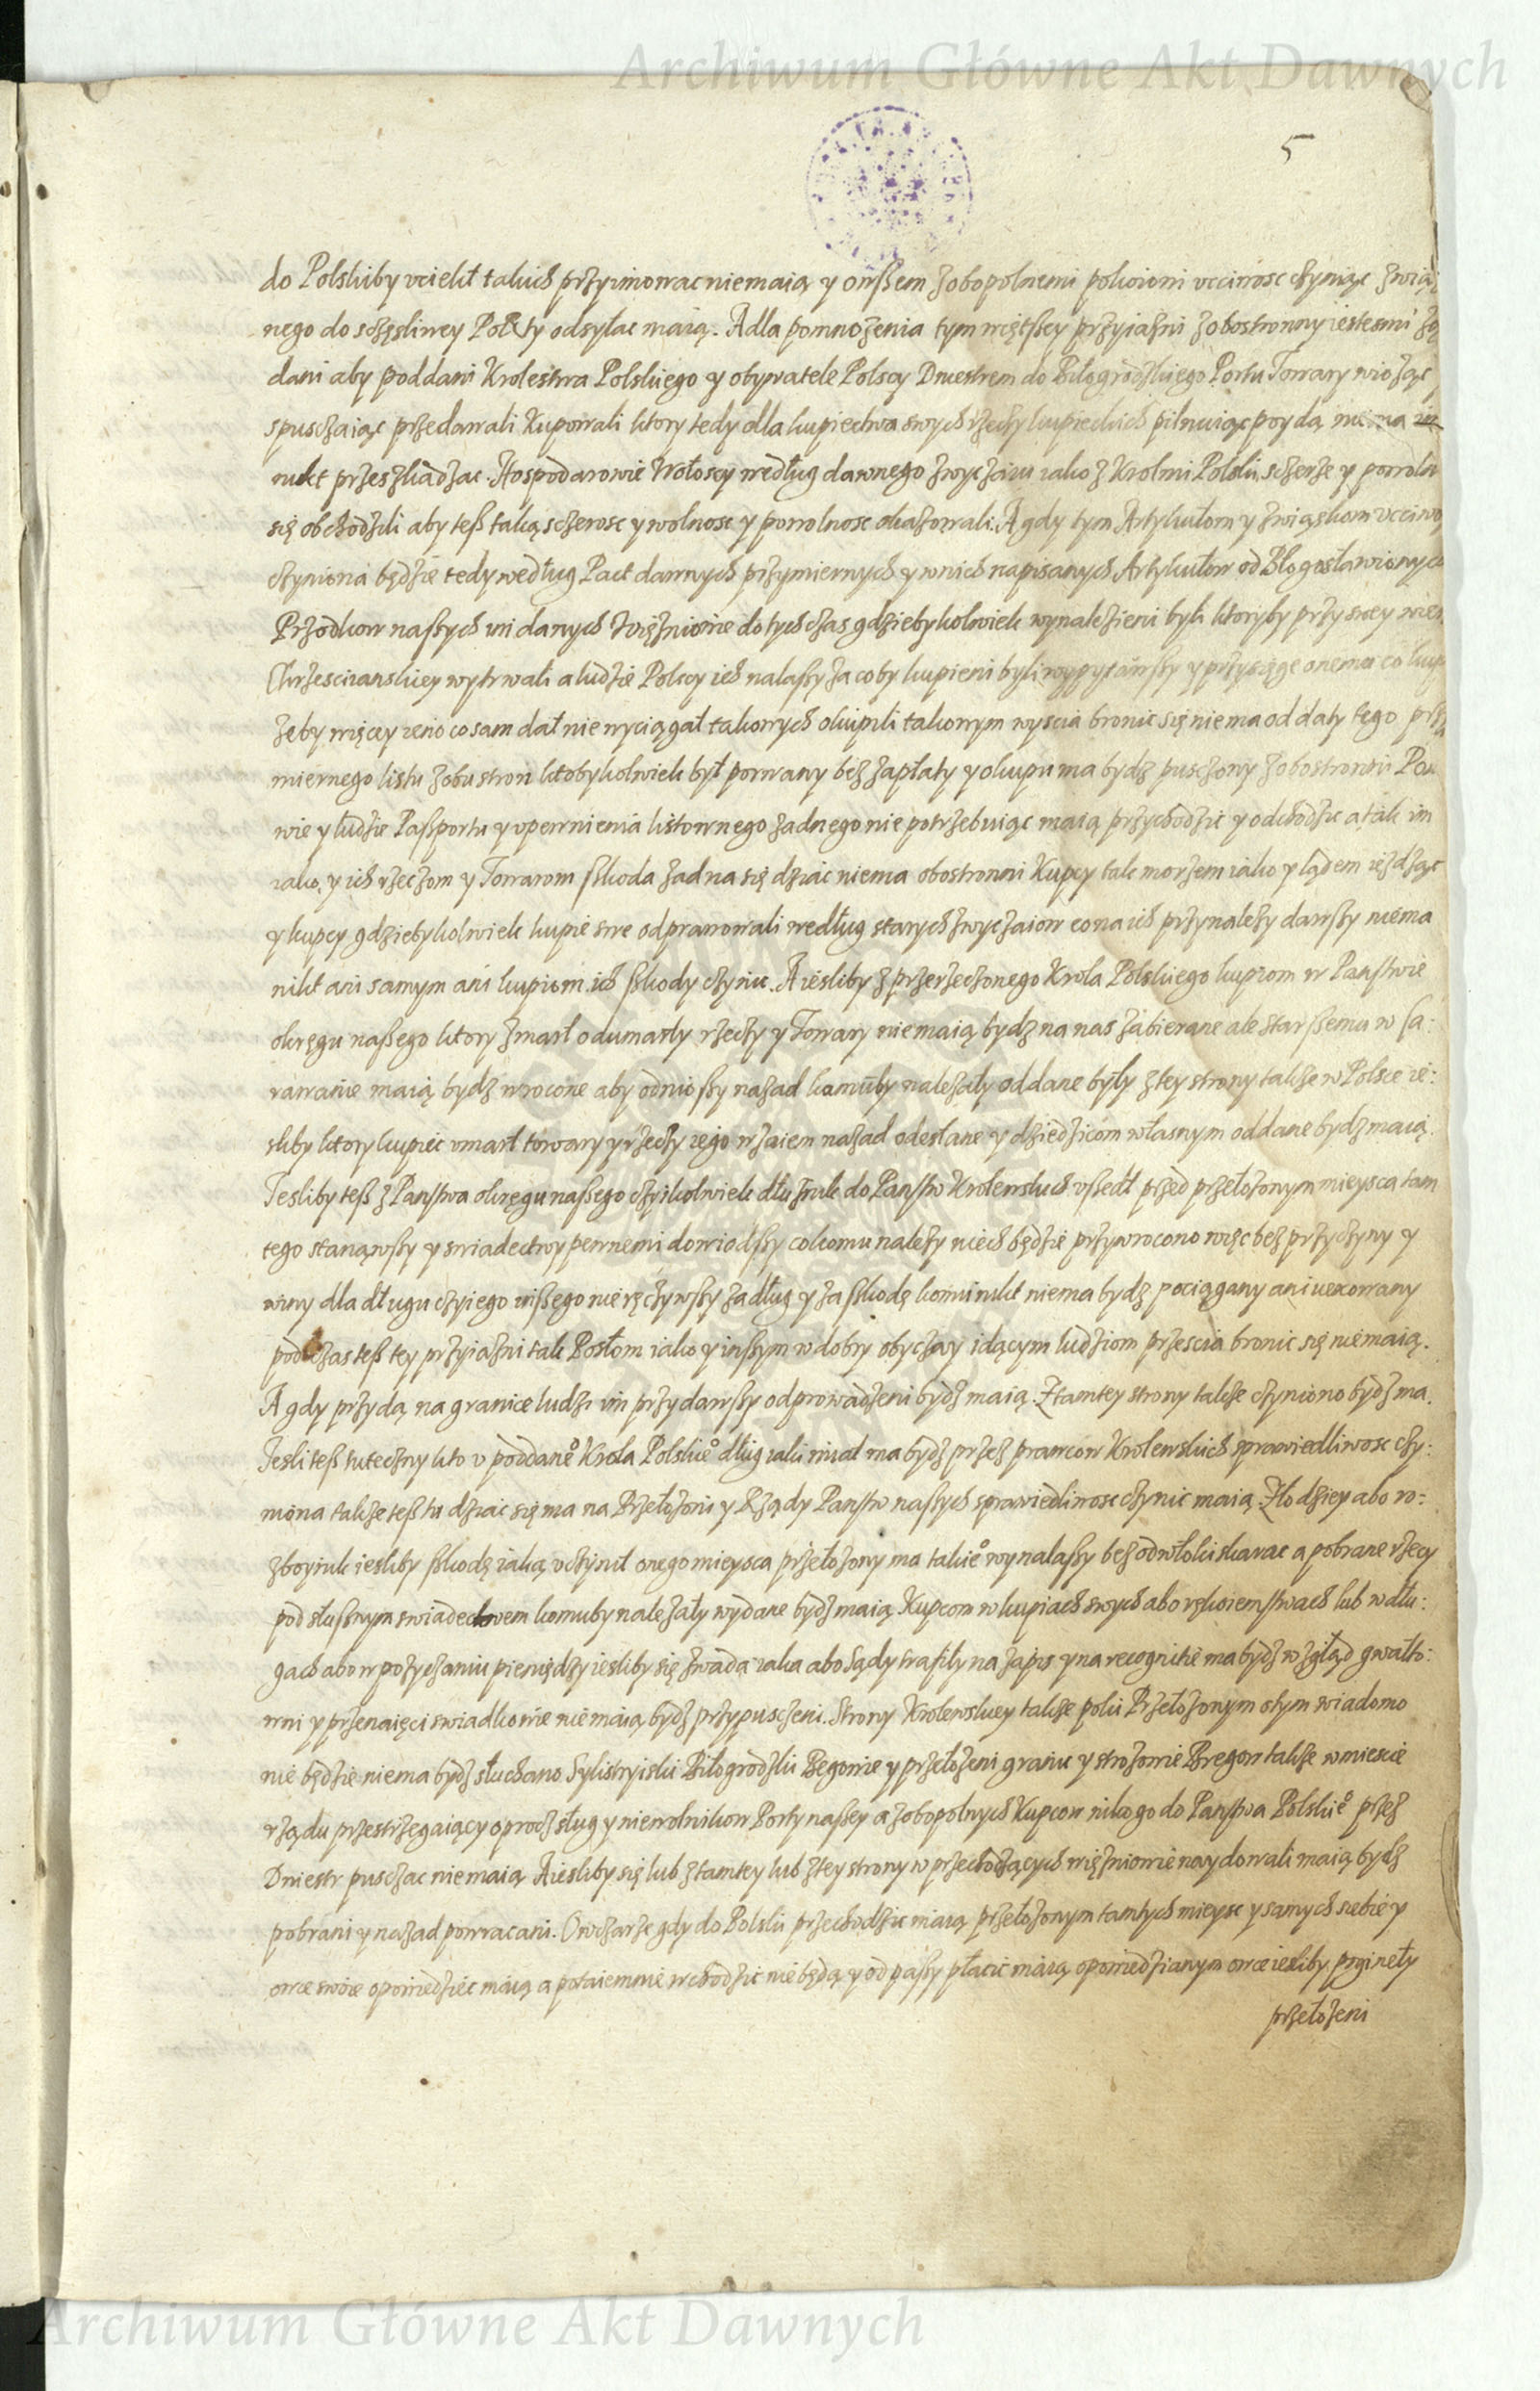 Archiwum Główne Akt Dawnych
5
do Polskiby uciekł takich przyimowac niemaią y owszem zobopolnemi pokoioni ucciwosc czyniąc zwią
nego do sczęsliwey Porty odsyłac maią. A dla pomnozenia tym więtszey przyiazni z obostronny iestesmi zą
dani aby poddani Krolestwa Polskiego y obywatele Polscy Dniestrem do Biłogrodzkiego Portu Towary wioząc
spusczaiąc przedawali Kupowali ktory tedy dla kupiectwa swych rzeczy kupieckich pilnuiąc poydą niema
nikt przeszkadzac. Hospodarowie Wołoscy według dawnego zwyczaiu iako z Krolmi Polski sczerze y powoln
się obchodzili aby tesz taką sczerosc y wolnosc y powolnosc okazowali. A gdy tym Artykułom y związkom ucciwo
czyniona będzie tedy według Pact dawnych przymiernych y wnich napisanych Artykułow od Błogosławionych
Przodkow naszych widanych Więzniowie do tych czas gdziebykolwiek wynalezieni byli ktoryby przy swey wier
Chrzescianskiey wytrwali a ludzie Polscy ich nalazszy za coby kupieni byli wypytawszy y przysięgę onemu co kup
zeby więcey ieno co sam dał nie wyciągał takowych okupili takowym wyscia bronic się niema od daty tego przy
miernego listu z obu stron ktobykolwiek był porwany bez zapłaty y okupu ma bydz pusczony z obostronni Po
wie y ludzie Paszportu y upewnienia listownego zadnego nie potrzebuiąc maią przychodzic y odchodzic a tak im
iako y ich rzeczom y Towarom szkoda zadna się dziac niema obostronni Kupcy tak morzem iako y lądem iezdząc
y kupcy gdziebykolwiek kupie swe odprawowali według starych zwyczaiow co na ich przynalezy dawszy niema
nikt ani samym ani kupiom ich szkody czynic. A iesliby z przerzeczonego Krola Polskiego kupiom w Panstwie
okręgu naszego ktory zmarł odumarły rzeczy y Towary niemaią bydz na nas zabierane ale starszemu w ka:
rawanie maią bydz wrocone aby odniozszy nazad komuby nalezały oddane były z tey strony takze w Polsce ie:
sliby ktory kupiec umarł towary y rzeczy iego wzaiem nazad odesłane y dziedzicom własnym oddane bydz maią.
Iesliby tesz z Panstwa okręgu naszego czyikolwiek dłuznik do Panstw Krolewskich uszedł przed przełozonym mieysca tam
tego stanąwszy y swiadectwy pewnemi dowiodszy co komu nalezy niech będzie przywrocono więc bez przyczyny y
winy dla długu czyiego inszego nie ręczywszy za dług y za szkodę komu nikt niema bydz pociągany ani uexowany
podczas tesz tey przyiazni tak Posłom iako y inszym w dobry obyczay idącym ludziom przescia bronic się niemaią.
A gdy przydą na granice ludzi im przydawszy odprowadzeni bydz maią. Z tamtey strony takze czyniono bydz ma.
Iesli tesz tuteczny kto u poddane° Krola Polskie° dług iaki miał ma bydz przez prawcow Krolewskich sprawiedliwosc czy:
niona takze tesz tu dziac się ma na Przełozoni y Rządy Panstw naszych sprawiedliwosc czynic maią. Złodziey abo ro:
zboynik iesliby szkodę iaką uczynił onego mieysca przełozony ma takie° wynalazszy bez odwłoki skarac a pobrane rzeczy
pod słusznym swiadectwem komuby nalezały wydane bydz maią Kupcom w kupiach swych abo rękoiemstwach lub w dłu:
gach abo w pozyczaniu pieniędzy iesliby się zwada iaka abo Sądy trafiły na zapis y na recognitie ma bydz wzgląd gwałto:
wni y przenaięci swiadkowie niemaią bydz przypusczeni. Strony Krolewskiey takze poki Przełozonym o tym wiadomo
nie będzie niema bydz słuchano Sylistryiski Biłogrodzki Begowie y przełozeni granic y strozowie Bregow takze w miescie
rządu przestrzegaiący oprocz sług y niewolnikow Porty naszey a zobopolnych Kupcow nikogo do Panstwa Polskie° przez
Dniestr pusczac niemaią. A iesliby się lub z tamtey lub z tey strony w przechodzących więzniowie naydowali maią bydz
pobrani y nazad powracani. Owczarze gdy do Polski przechodzic maią przełozonym tamtych mieysc y samych siebie y
owce swoie opowiedziec maią a potaiemnie wchodzic nie będą y od paszy płacic maią opowiedzianym owce iesliby poginęły
przełozeni
Archiwum Główne Akt Dawnych